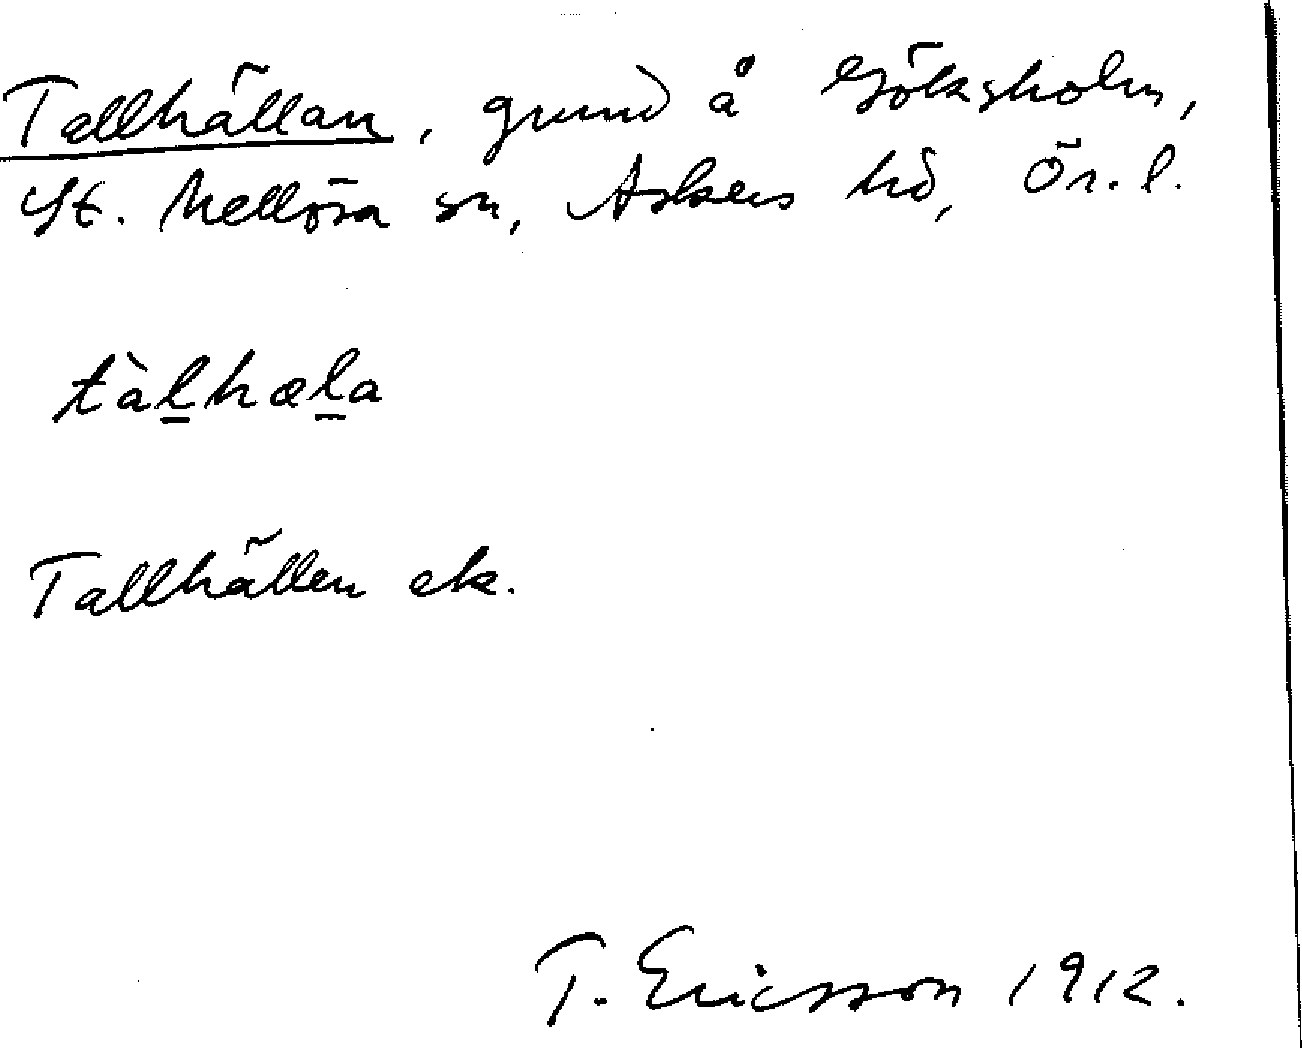 Tallhällan, grund å Göksholm,
St. Mellösa sn, Askers hd, Ör. l.
tàl̠hæl̠a
Tallhällen ek.
T. Ericsson 1912.